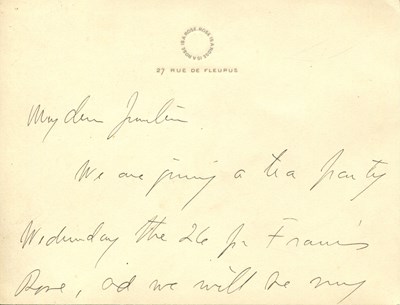 ROSE IS A ROSE IS A ROSE IS A ROSE
27 RUE DE FLEURUS
My dear
We are giving a tea party
Wednesday the 26 for Francis
Rose, and we will be very